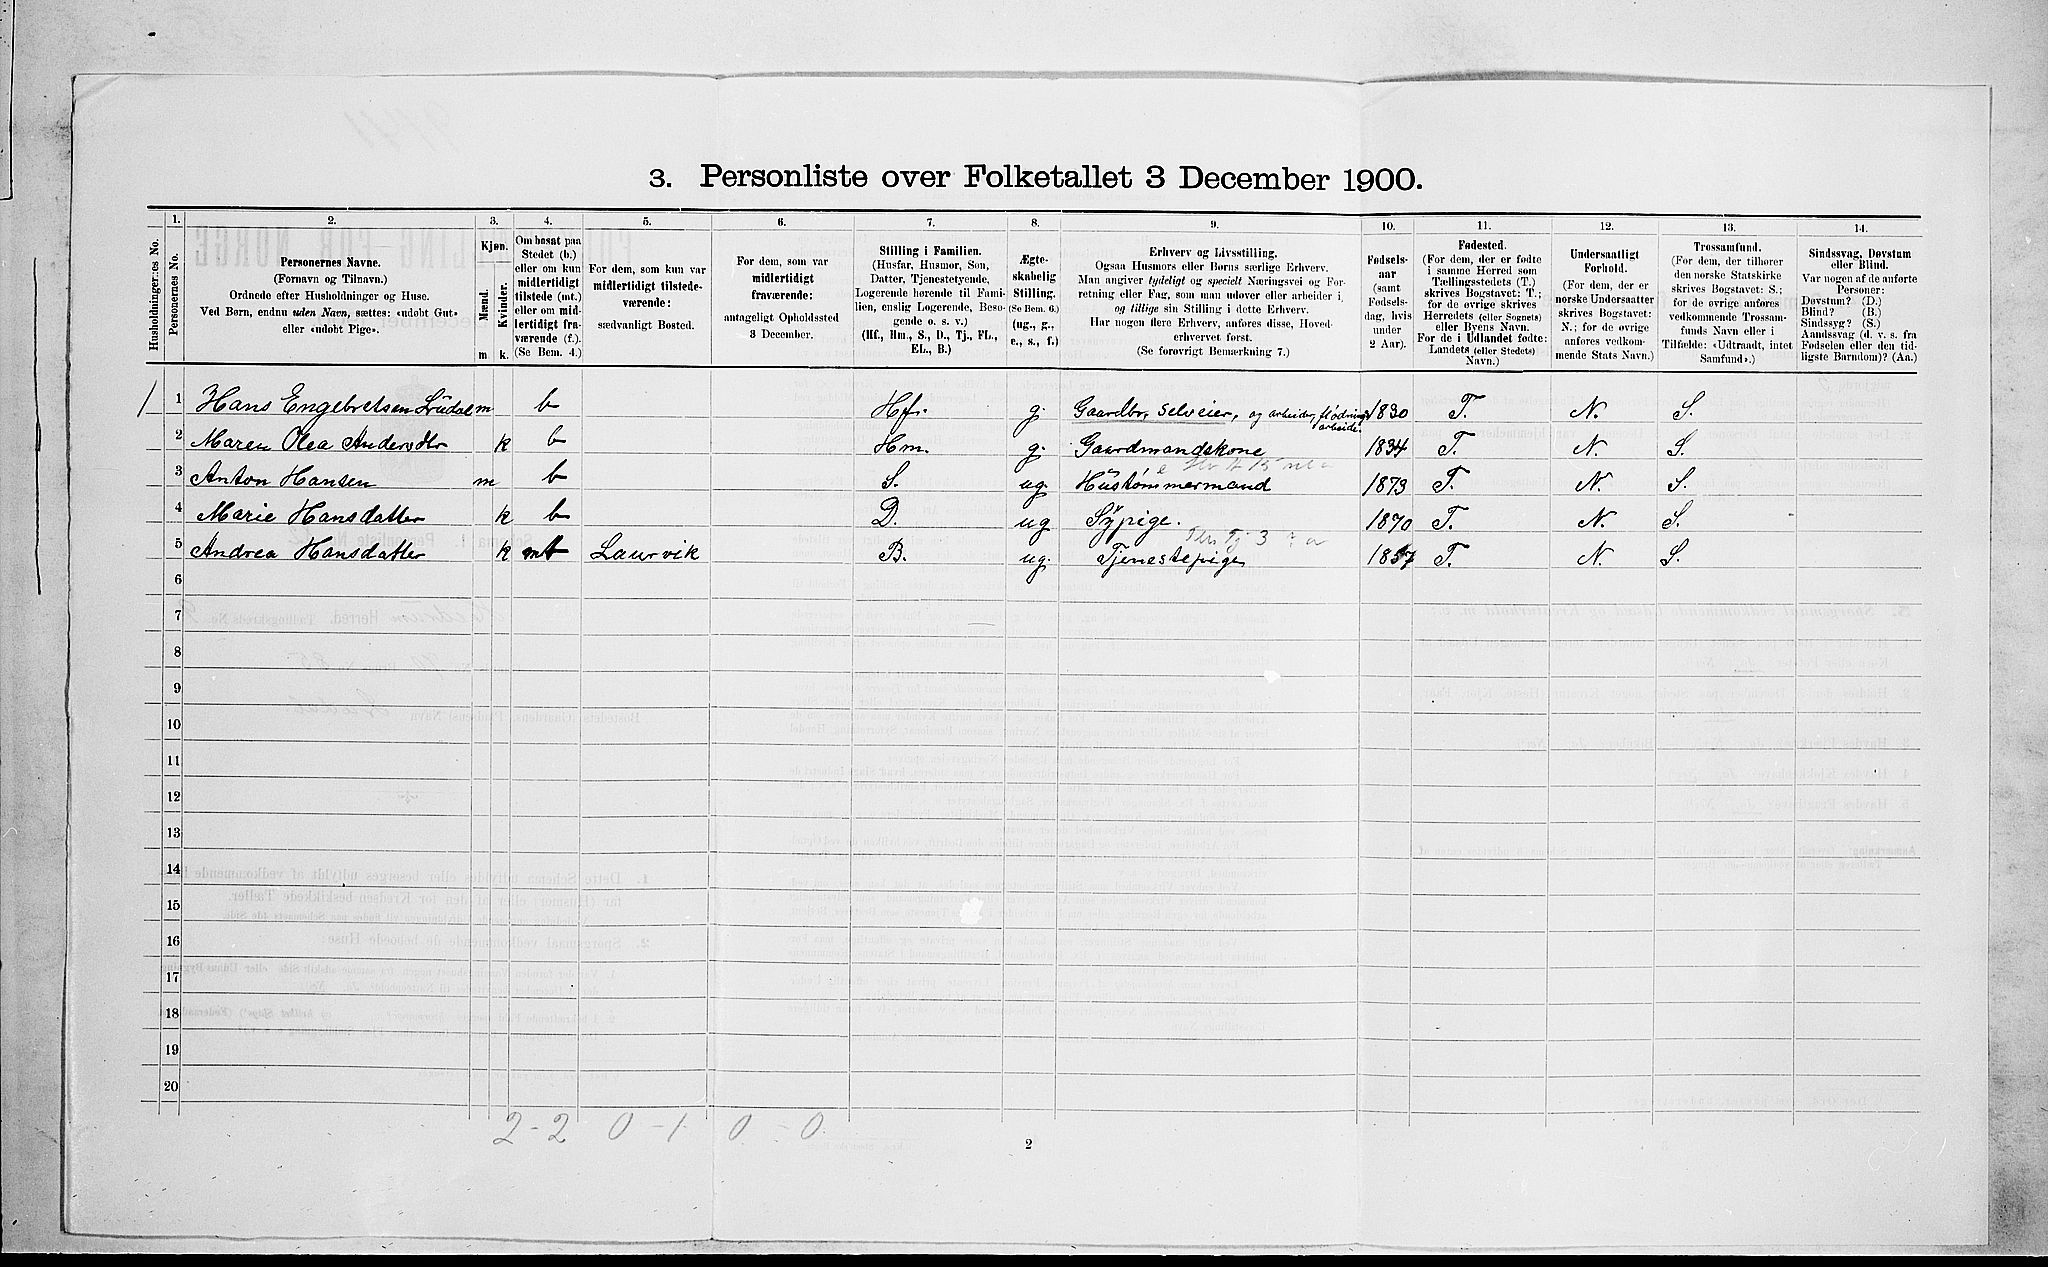 3. Personliste over Folketallet 3 December 1900.
1. 2. 3. 4. 5. 6. 7. 8. 9. 10. 11. 12. 13. 14.
Husholdningernes No.
Personernes No.
Personernes Navne.
(Fornavn og Tilnavn.)
Ordnede efter Husholdninger og Huse.
Ved Børn, endnu uden Navn, sættes: «udøbt Gut»
eller «udøbt Pige».
Kjøn.
Mænd.
Kvinder.
m. k.
Om bosat paa
Stedet (b.)
eller om kun
midlertidigt
tilstede (mt.)
eller om mid-
lertidigt fra-
værende (f.).
(Se Bem. 4.)
For dem, som kun var
midlertidigt tilstede-
værende:
sædvanligt Bosted.
For dem, som var
midlertidigt
fraværende:
antageligt Opholdssted
3 December.
Stilling i Familien.
(Husfar, Husmor, Søn,
Datter, Tjenestetyende,
Logerende hørende til Fami-
lien, enslig Logerende, Besø-
gende o. s. v.)
(Hf., Hm., S., D., Tj., FL.,
EL., B.)
Ægte-
skabelig
Stilling.
(Se Bem. 6.)
(ug., g.,
e., s., f.)
Erhverv og Livsstilling.
Ogsaa Husmors eller Børns særlige Erhverv.
Man angiver tydeligt og specielt Næringsvei og For-
retning eller Fag, som man udøver eller arbeider i,
og tillige sin Stilling i dette Erhverv.
Har nogen flere Erhverv, anføres disse, Hoved-
erhvervet først.
(Se forøvrigt Bemerkning 7.)
Fødsels-
aar
(samt
Fødsels-
dag, hvis
under
2 Aar).
Fødested.
(For dem, der er fødte
i samme Herred som
Tællingsstedets (T.)
skrives Bogstavet: T.;
for de øvrige skrives
Herredets (eller Sognets)
eller Byens Navn.
For de i Udlandet fødte:
Landets (eller Stedets)
Navn.)
Undersaatligt
Forhold.
(For dem, der er
norske Undersaatter
skrives Bogstavet:
N.; for de øvrige
anføres vedkom-
mende Stats Navn.)
Trossamfund.
(For dem, der tilhører
den norske Statskirke
skrives Bogstavet: S.;
for de øvrige anføres
vedkommende Trossam-
funds Navn eller i
Tilfælde: «Udtraadt, intet
Samfund».)
Sindssvag, Døvstum
eller Blind.
Var nogen af de anførte
Personer:
Døvstum? (D.)
Blind? (B.)
Sindssyg? (S.)
Aandssvag (d. v. s. fra
Fødselen eller den tid-
ligste Barndom)? (Aa.)
1 1 Hans Engebretsen m b Hf. g. Gaardbr, selveier, og arbeider, flødnings 1830 T. N. S.
arbeide.
2 Maren Olea Andersdtr k b Hm. g. Gaardmandskone 1834 T. N. S.
3 Anton Hansen m b S. ug. Hustømmermand 1873 T. N. S.
4 Marie Hansdatter k b D. ug Sypige. 1870 T. N. S.
5 Andrea Hansdatter k mt Laurvik B. ug. Tjenestepige 1857 T. N. S.
6
7
8
9
10
11
12
13
14
15
16
17
18
19
20
2-2 0-1 0-0
2